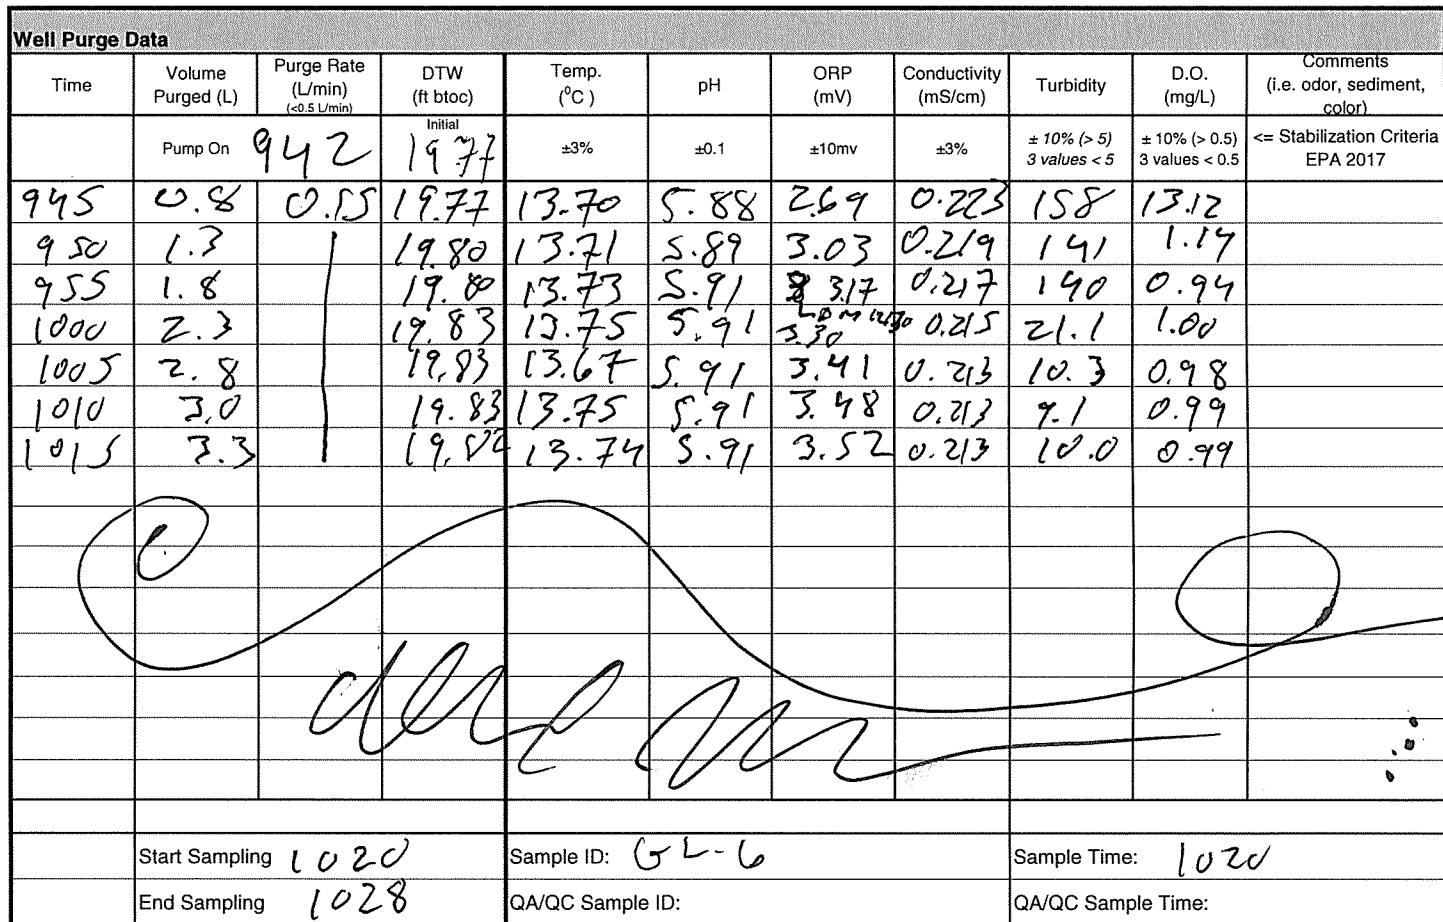 Well Purge Data
Time Volume Purged (L) Purge Rate (L/min) (<0.5 L/min) DTW (ft btoc) Temp. (⁰C ) pH ORP (mV) Conductivity (mS/cm) Turbidity D.O. (mg/L) Comments (i.e. odor, sediment, color)
Pump On 942 Initial 19.77 ±3% ±0.1 ±10mv ±3% ± 10% (> 5) 3 values < 5 ± 10% (> 0.5) 3 values < 0.5 <= Stabilization Criteria EPA 2017
945 0.8 0.15 19.77 13.70 5.88 2.69 0.223 158 13.12
950 1.3 19.80 13.71 5.89 3.03 0.219 141 1.14
955 1.8 19.80 13.73 5.91 3.17 0.217 140 0.94
1000 2.3 19.83 13.75 5.91 3.30 0.215 21.1 1.00
1005 2.8 19.83 13.67 5.91 3.41 0.213 10.3 0.98
1010 3.0 19.83 13.75 5.91 3.48 0.213 9.1 0.99
1015 3.3 19.82 13.74 5.91 3.52 0.213 10.0 0.99
Start Sampling 1020 Sample ID: GL-6 Sample Time: 1020
End Sampling 1028 QA/QC Sample ID: QA/QC Sample Time: